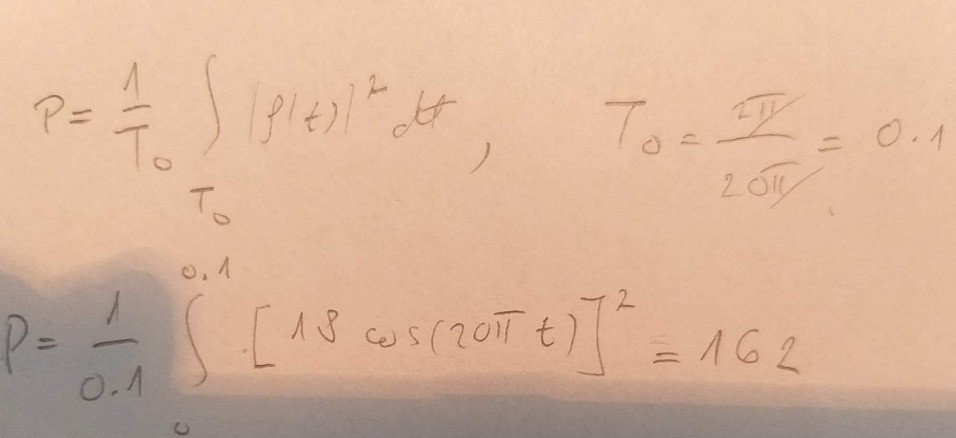 P = \frac{1}{T_0} \int_{T_0} |f(t)|^2 dt , T_0 = \frac{2π}{20π} = 0.1
P = \frac{1}{0.1} \int_0^{0.1} [18 cos(20π t)]^2 = 162